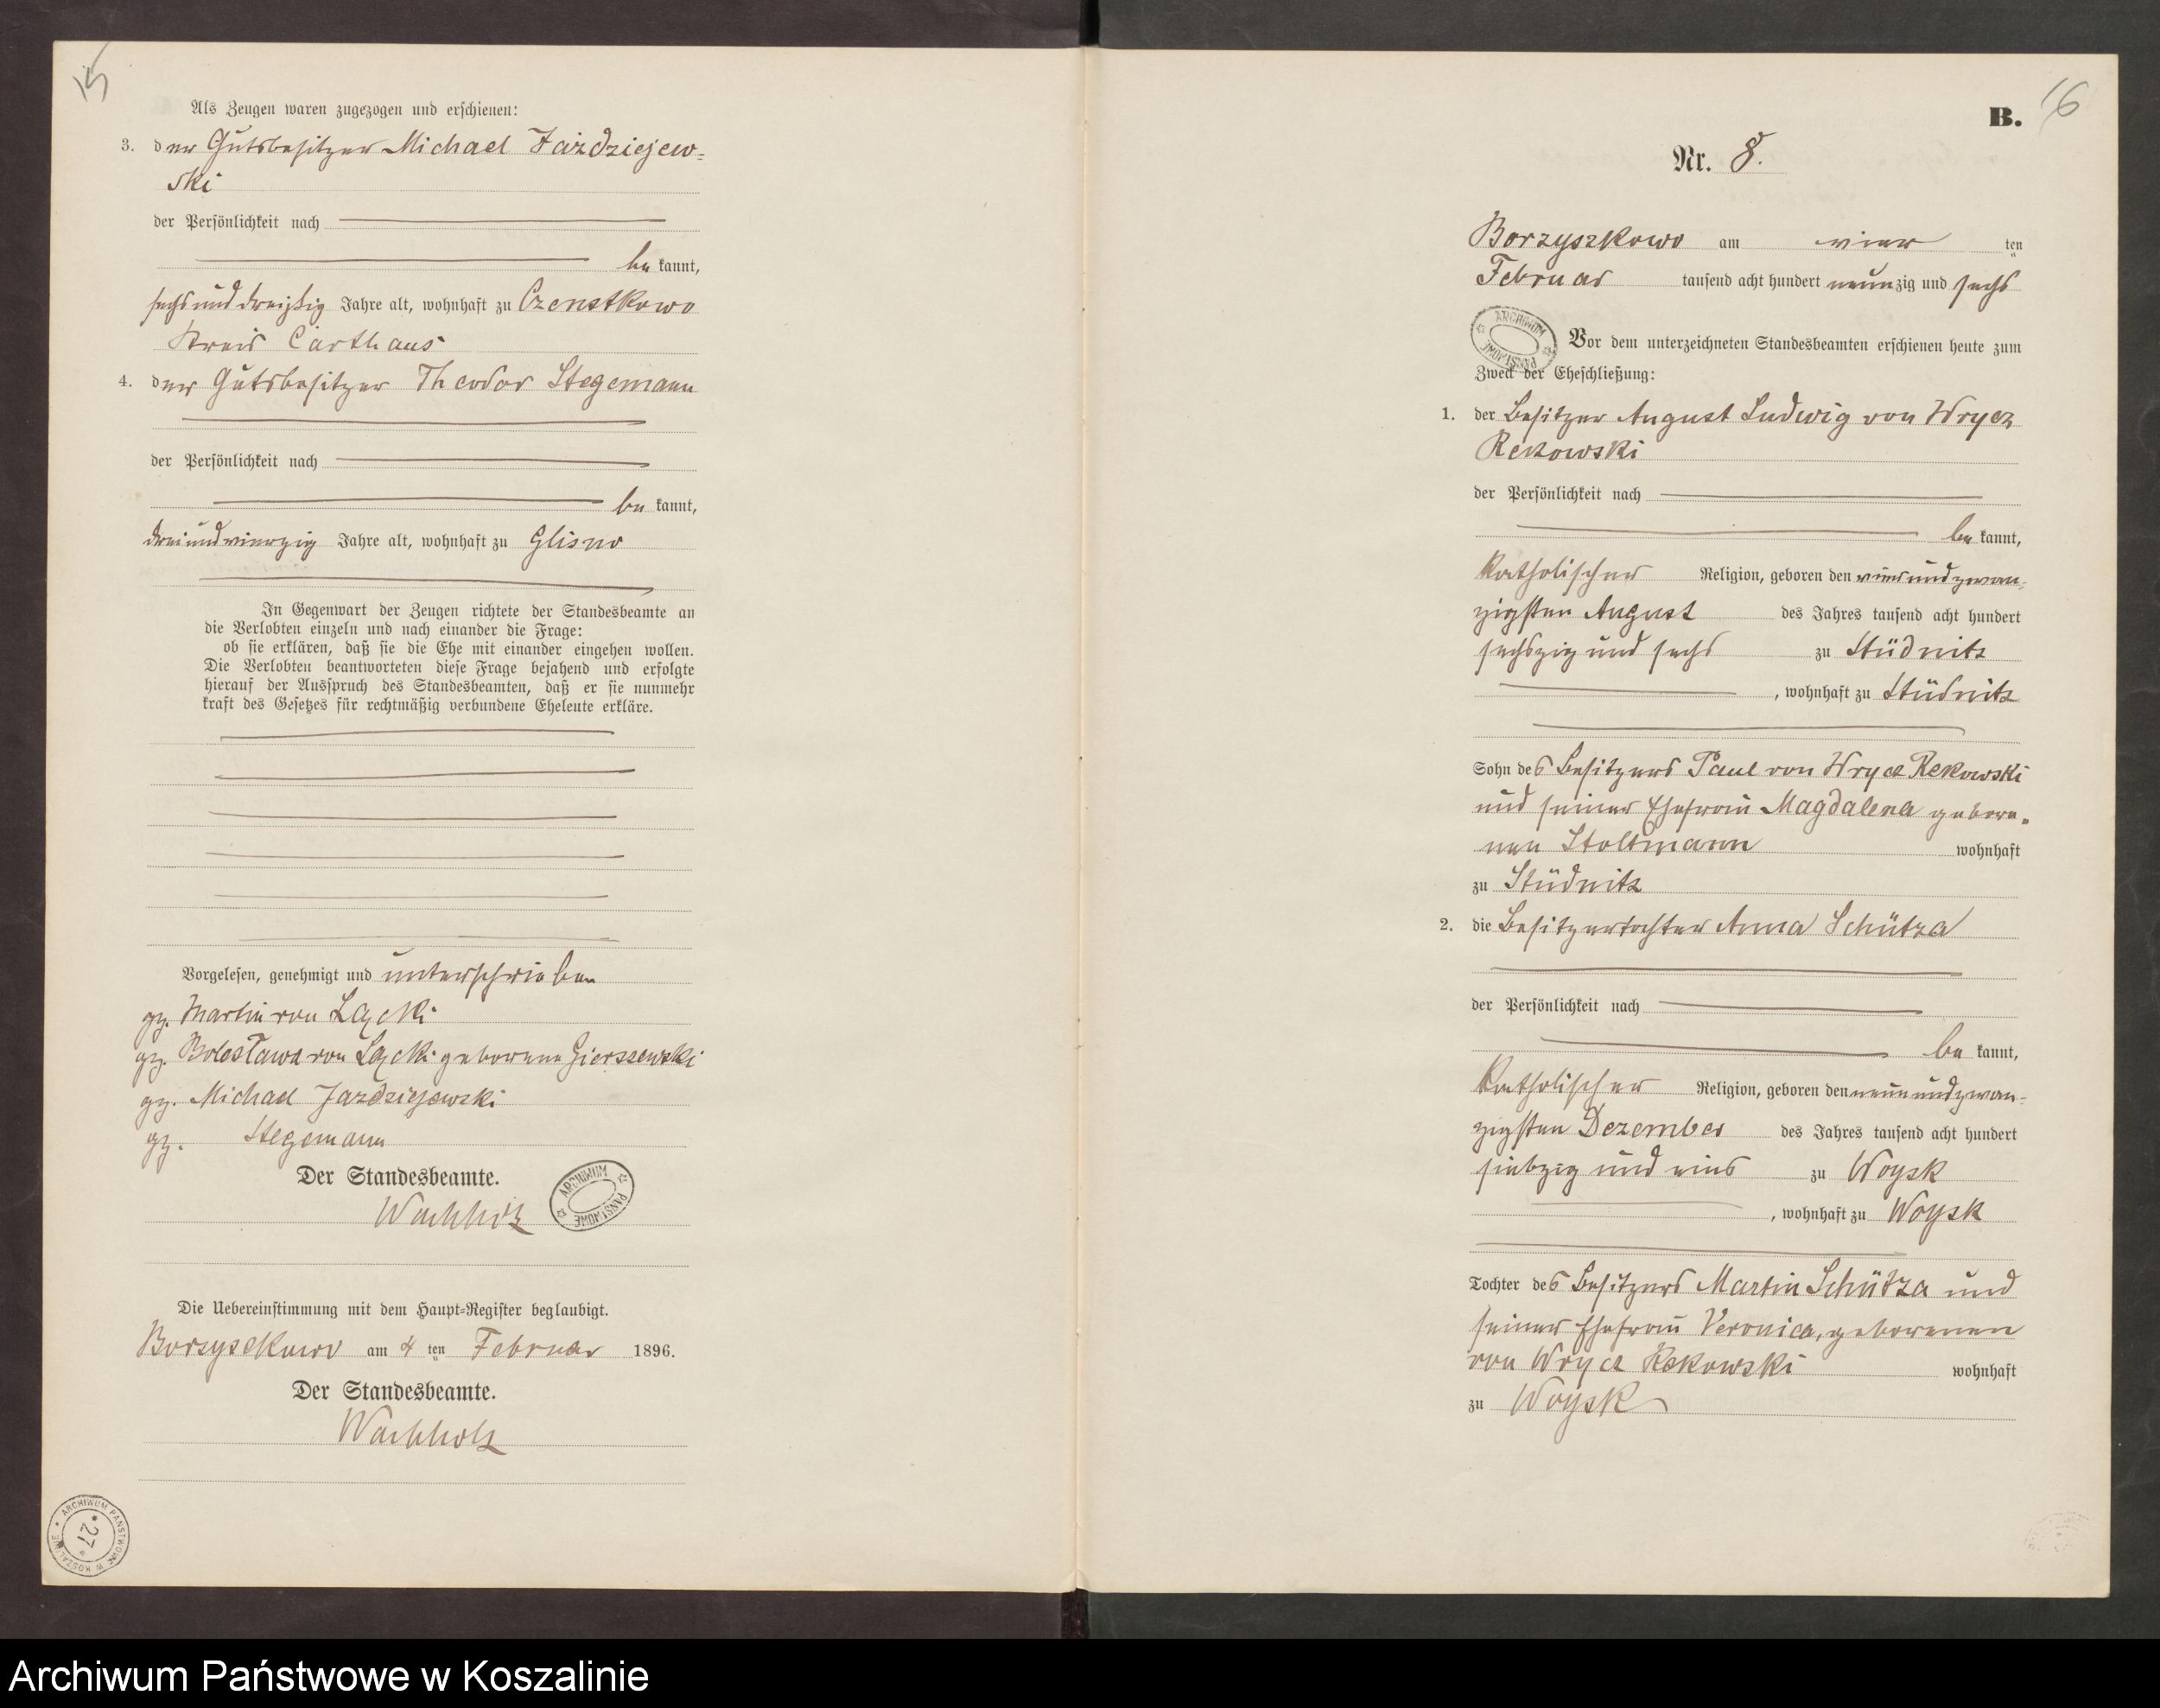 15
Als Zeugen waren zugezogen und erschienen:
3. der Gutsbesitzer Michael Jazdziejew-
ski
der Persönlichkeit nach
be kannt,
sechsunddreißig Jahre alt, wohnhaft zu Czenstkowo
Kreis Carthaus
4. der Gutsbesitzer Theodor Stegemann
der Persönlichkeit nach
be kannt,
dreiundvierzig Jahre alt, wohnhaft zu Glisno
In Gegenwart der Zeugen richtete der Standesbeamte an
die Verlobten einzeln und nach einander die Frage:
ob sie erklären, daß sie die Ehe mit einander eingehen wollen.
Die Verlobten beantworteten diese Frage bejahend und erfolgte
hierauf der Ausspruch des Standesbeamten, daß er sie nunmehr
kraft des Gesetzes für rechtmäßig verbundene Eheleute erkläre.
Vorgelesen, genehmigt und unterschrieben
gz. Martin von Łącki
gz. Bolesława von Łącki geborene Gierszewski
gz. Michael Jazdziejewski
gz. Stegemann
Der Standesbeamte.
Wachholz
ARCHIWUM PAŃSTWOWE
Die Uebereinstimmung mit dem Haupt-Register beglaubigt.
Borzyszkowo am 4 ten Februar 1896.
Der Standesbeamte.
Wachholz
ARCHIWUM PAŃSTWOWE W KOSZALINIE
*27*
16
B.
Nr. 8.
Borzyszkowo am vier ten
Februar tausend acht hundert neunzig und sechs
ARCHIWUM PAŃSTWOWE
Vor dem unterzeichneten Standesbeamten erschienen heute zum
Zweck der Eheschließung:
1. der Besitzer August Ludwig von Wrycz
Rekowski
der Persönlichkeit nach
be kannt,
katholischer Religion, geboren den vierundzwan-
zigsten August des Jahres tausend acht hundert
sechszig und sechs zu Stüdnitz
, wohnhaft zu Stüdnitz
Sohn des Besitzers Paul von Wrycz Rekowski
und seiner Ehefrau Magdalena gebore-
nen Stoltmann wohnhaft
zu Stüdnitz
2. die Besitzertochter Anna Schütza
der Persönlichkeit nach
be kannt,
katholischer Religion, geboren den neunundzwan-
zigsten Dezember des Jahres tausend acht hundert
siebzig und eins zu Woysk
, wohnhaft zu Woysk
Tochter des Besitzers Martin Schütza und
seiner Ehefrau Veronica, geborenen
von Wrycz Rekowski wohnhaft
zu Woysk
Archiwum Państwowe w Koszalinie